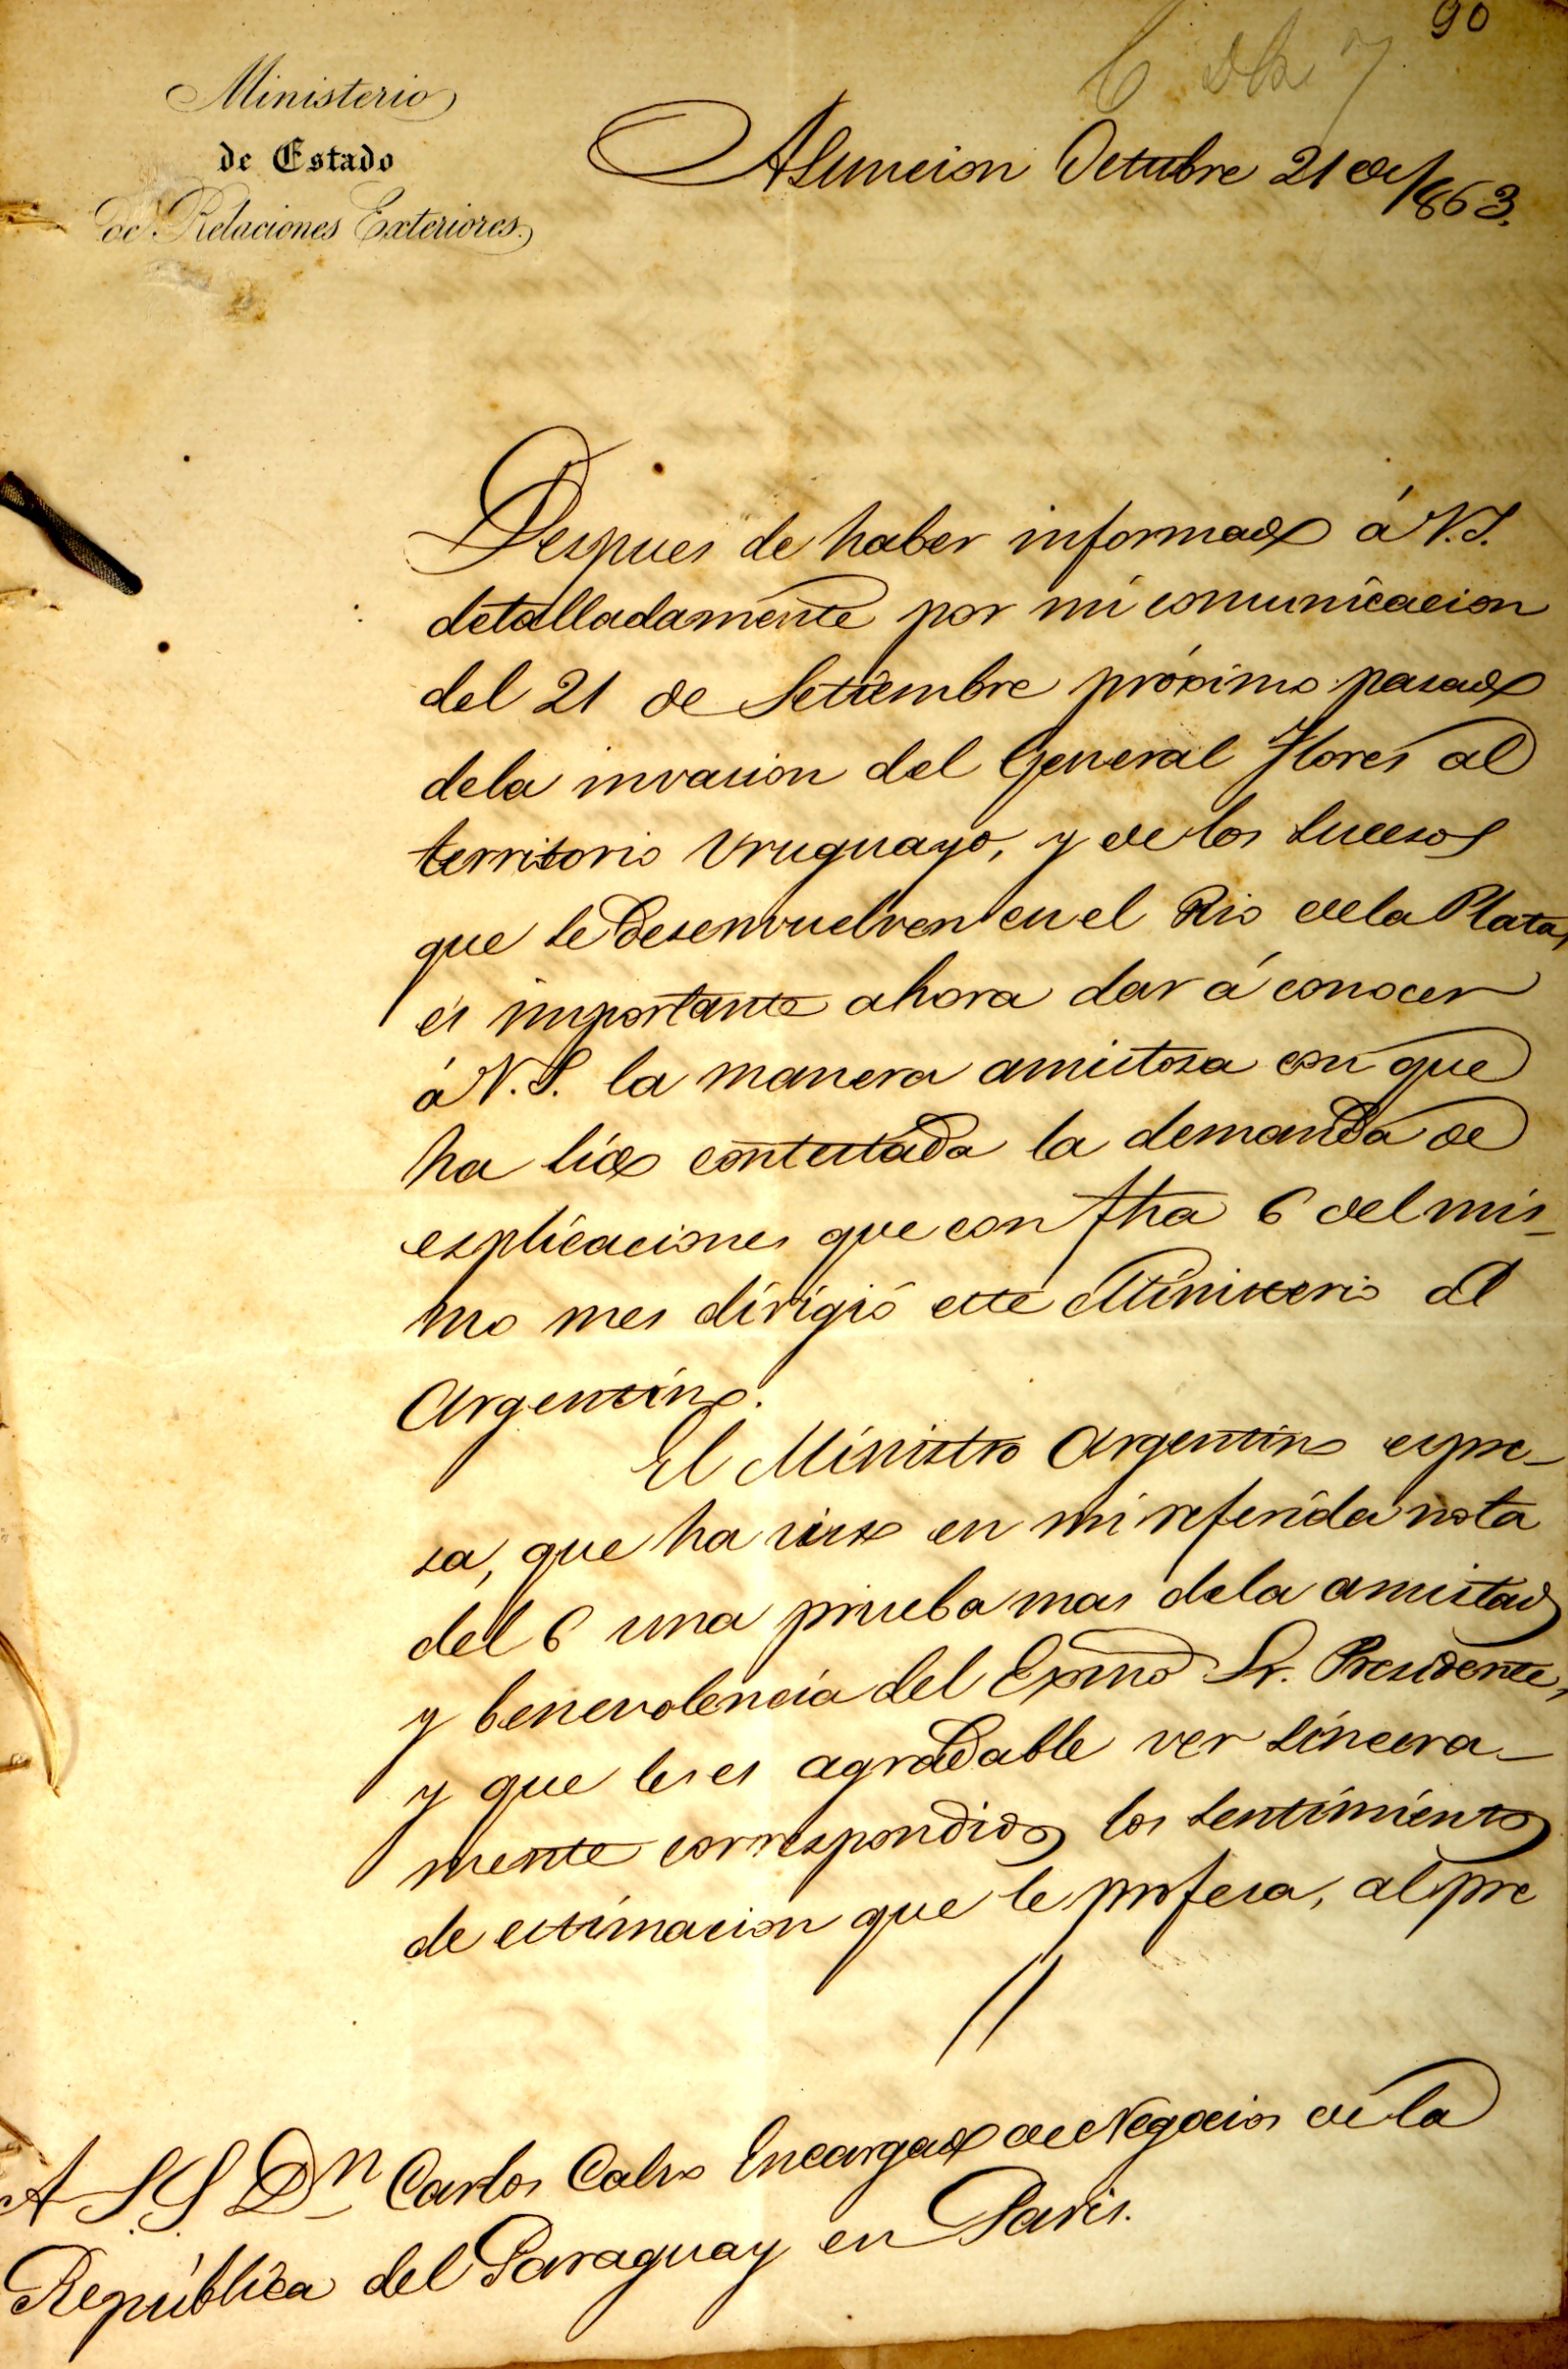 90
Ministerio
de Estado
de Relaciones Exteriores.
Asuncion Octubre 21 de 1863.
Despues de haber informado á V.S.
detalladamente por mi comunicacion
del 21 de Setiembre próximo pasado
dela invasion del General Flores al
territorio Uruguayo, y de los sucesos
que se desenvuelven en el Rio dela Plata,
es importante ahora dar á conocer
á V.S. la manera amistosa con que
ha sido contestada la demanda de
esplicaciones que con fha 6 del mis-
mo mes dirigió este Ministerio al
Argentino.
El Ministro Argentino espre-
sa, que ha visto en mi referida nota
del 6 una prueba mas dela amistad
y benevolencia del Exmo Sr. Presidente,
y que les es agradable ver sincera-
mente correspondidos los sentimientos
de estimacion que le profesa, al pre
//
A S.S. Dn Carlos Calvo Encargado de Negocios de la
República del Paraguay en Paris.